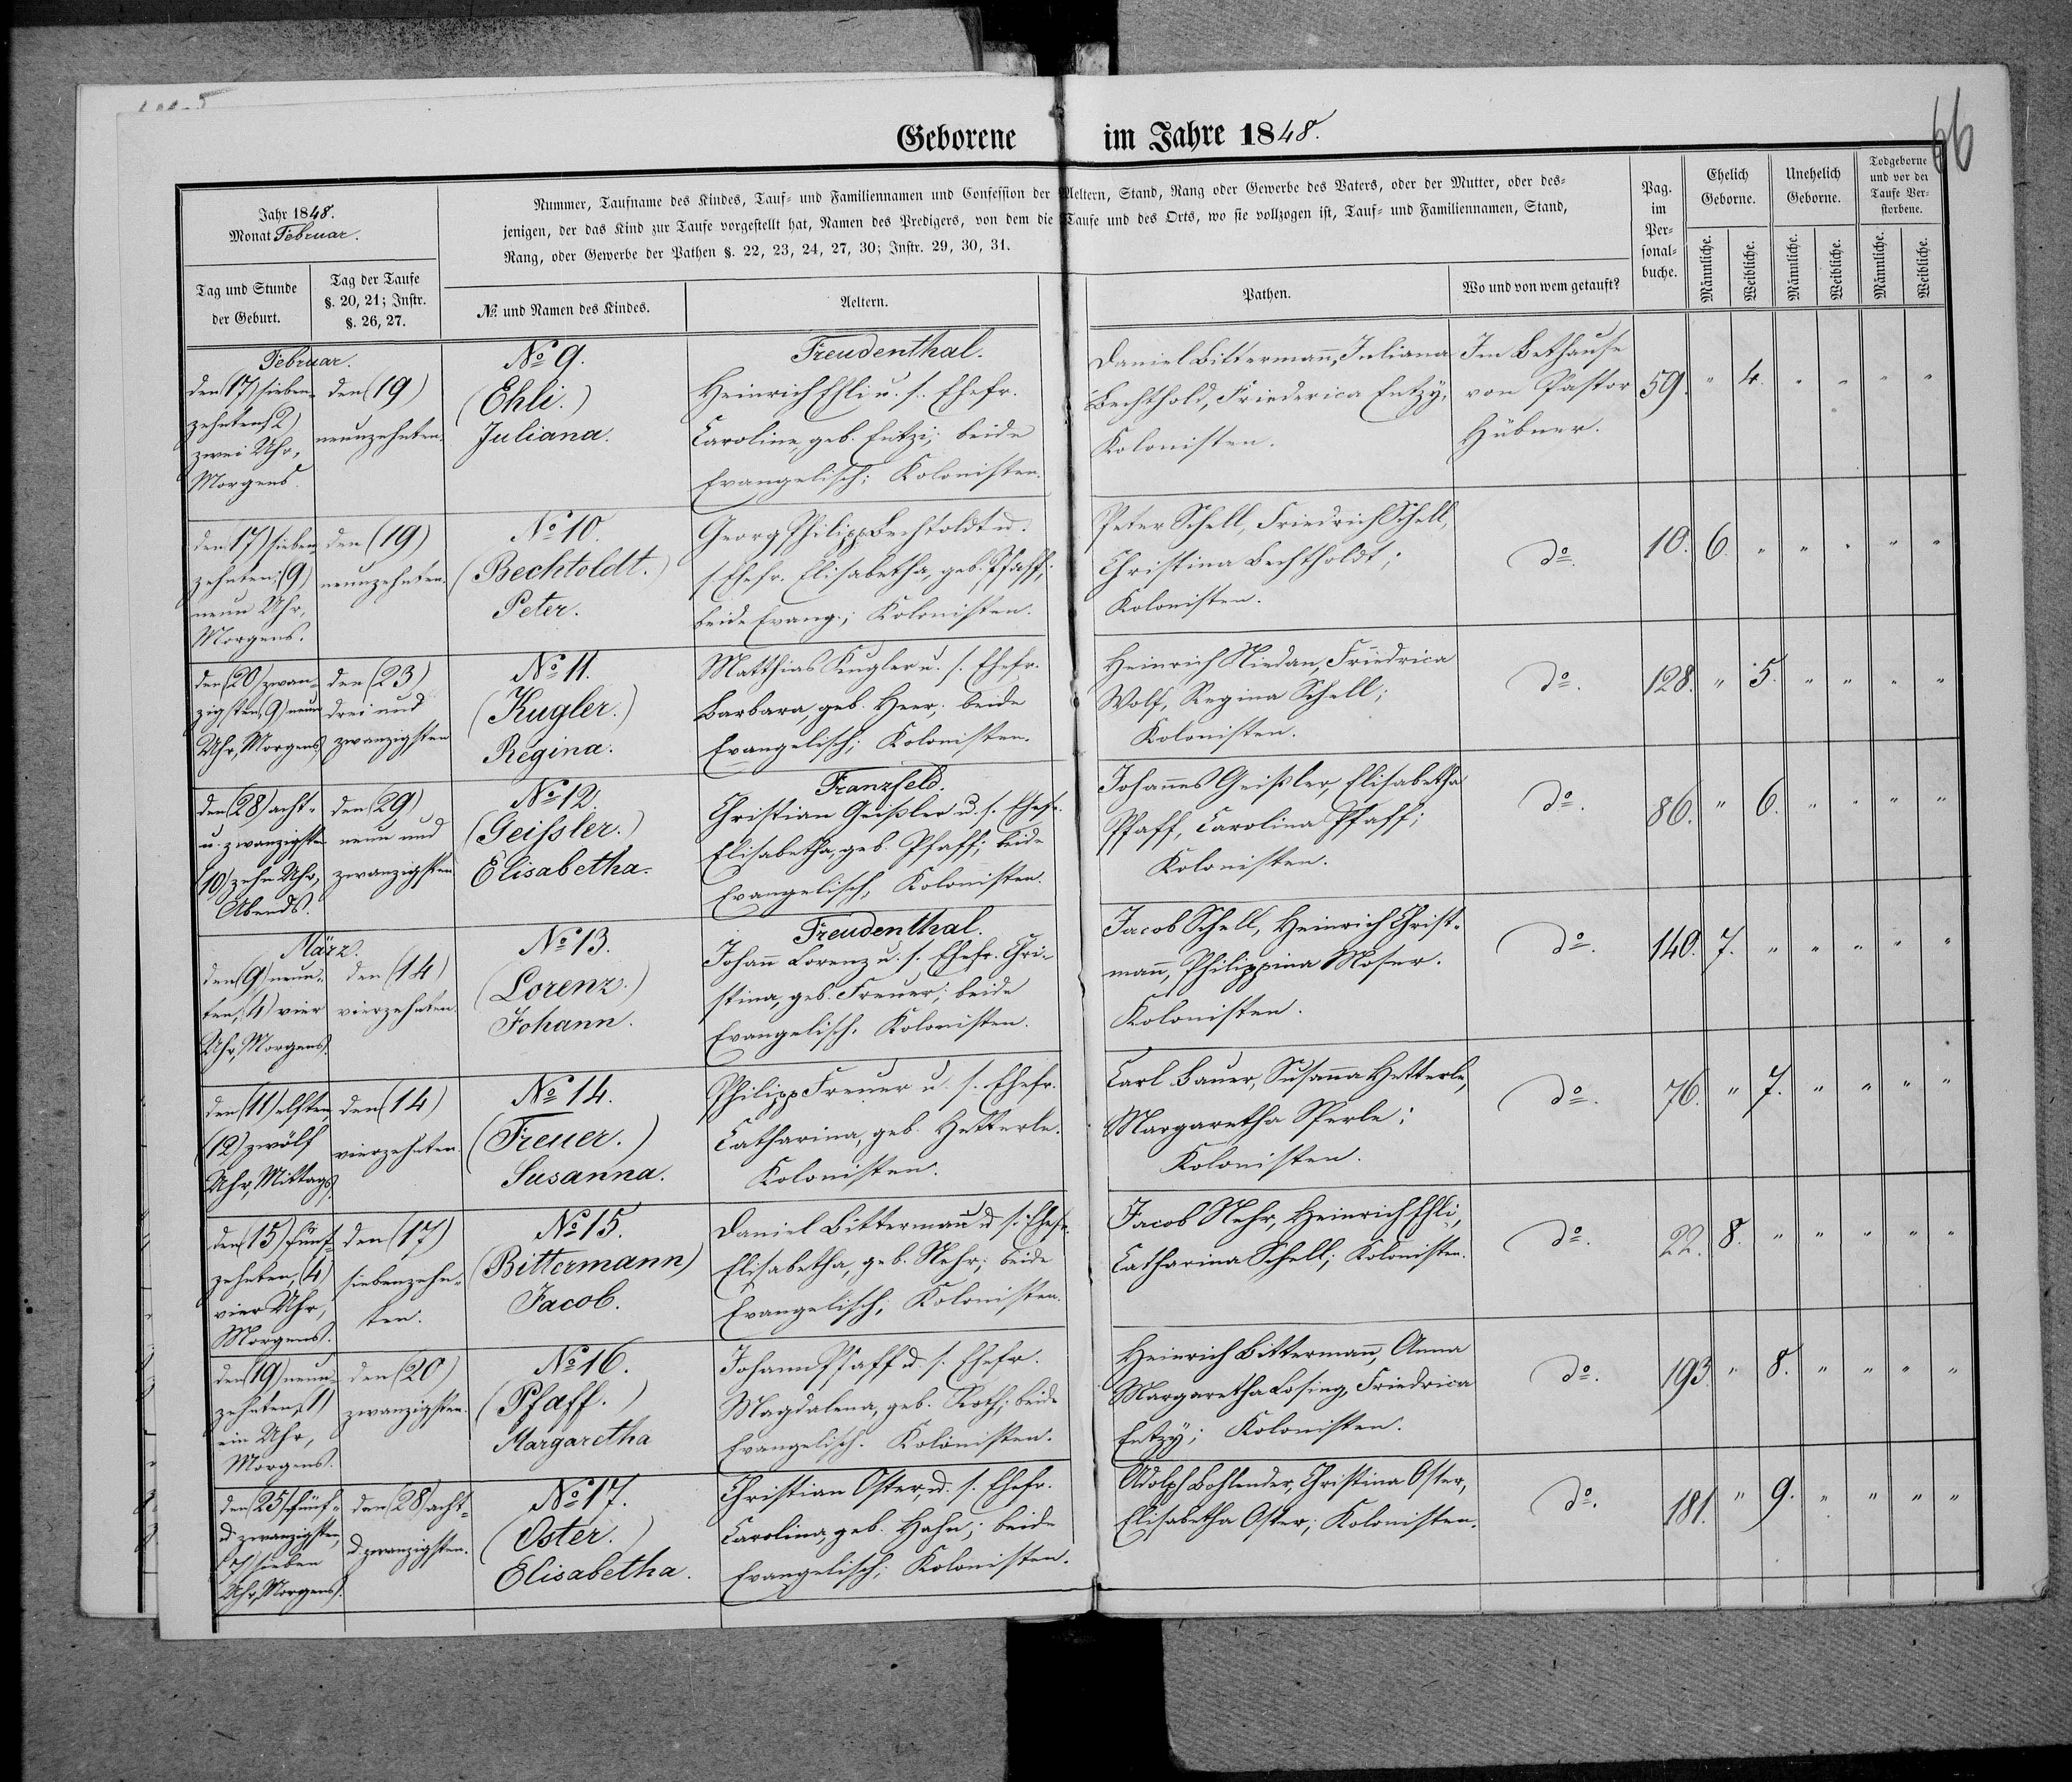 66
Geborene im Jahre 1848.
Jahr 1848.
Monat Februar.
Tag und Stunde
der Geburt.
Tag der Taufe
§. 20, 21; Instr.
§. 26, 27.
Nummer, Taufname des Kindes, Tauf- und Familiennamen und Confession der Aeltern, Stand, Rang oder Gewerbe des Vaters, oder der Mutter, oder des-
jenigen, der das Kind zur Taufe vorgestellt hat, Namen des Predigers, von dem die Taufe und des Orts, wo sie vollzogen ist, Tauf- und Familiennamen, Stand,
Rang, oder Gewerbe der Pathen §. 22, 23, 24, 27, 30; Instr. 29, 30, 31.
№ und Namen des Kindes.
Aeltern.
Pathen.
Wo und von wem getauft?
Pag.
im
Per-
sonal-
buche.
Ehelich
Geborne.
Unehelich
Geborne.
Todgeborne
und vor der
Taufe Ver-
storbene.
Männliche.
Weibliche.
Männliche.
Weibliche.
Männliche.
Weibliche.
Februar.
den (17) sieben-
zehnten (2)
zwei Uhr,
Morgens.
den (19)
neunzehnten.
№ 9.
(Ehli.)
Juliana.
Freudenthal.
Heinrich Ehli u. s. Ehefr.
Caroline, geb. Entzi; beide
Evangelisch; Kolonisten.
Daniel Bittermann, Juliana
Bechthold, Friederica Entzy,
Kolonisten.
Im Bethause
von Pastor
Hübner.
59. " 4. " " " "
den (17) sieben-
zehnten; (9)
neun Uhr,
Morgens.
den (19)
neunzehnten.
№ 10.
(Bechtoldt.)
Peter.
Georg Philipp Bechtoldt u.
s. Ehefr. Elisabetha, geb. Pfaff;
beide Evang.; Kolonisten.
Peter Schell, Friedrich Schell,
Christina Bechtholdt;
Kolonisten.
do.
10. 6. " " " " "
den (20) zwan-
zigsten, (9) neun
Uhr, Morgens
den (23)
drei und
zwanzigsten
№ 11.
(Kugler.)
Regina.
Matthias Kugler u. s. Ehefr.
Barbara, geb. Heer; beide
Evangelisch; Kolonisten.
Heinrich Niedan, Friedrica
Wolf, Regina Schell;
Kolonisten.
do.
128. " 5. " " " "
den (28) acht-
u. zwanzigsten
(10) zehn Uhr,
Abends.
den (29)
neun und
zwanzigsten
№ 12.
(Geissler.)
Elisabetha.
Franzfeld.
Christian Geißler u. s. Ehefr.
Elisabetha, geb. Pfaff; beide
Evangelisch, Kolonisten.
Johannes Geißler, Elisabetha
Pfaff, Carolina Pfaff;
Kolonisten.
do.
86. " 6. " " " "
März.
den (9) neun-
ten, (4) vier
Uhr, Morgens.
den (14)
vierzehnten.
№ 13.
(Lorenz.)
Johann.
Freudenthal.
Johann Lorenz u. s. Ehefr. Chri-
stina, geb. Freuer; beide
Evangelisch, Kolonisten.
Jacob Schell, Heinrich Christ-
mann, Philippina Moser.
Kolonisten.
do.
140. 7. " " " " "
den (11) elften
(12) zwölf
Uhr, Mittags
den (14)
vierzehnten.
№ 14.
(Freuer.)
Susanna.
Philipp Freuer u. s. Ehefr.
Catharina, geb. Hetterle.
Kolonisten.
Carl Bauer, Susanna Hetterle,
Margaretha Sperle;
Kolonisten.
do.
76. " 7. " " " "
den (15) fünf-
zehnten, (4)
vier Uhr,
Morgens.
den (17)
siebenzehn-
ten.
№ 15.
(Bittermann)
Jacob.
Daniel Bittermann u. s. Ehefr.
Elisabetha, geb. Nehr; beide
Evangelisch, Kolonisten.
Jacob Nehr, Heinrich Ehli,
Catharina Schell; Kolonisten.
do.
22. 8. " " " " "
den (19) neun-
zehnten, (1)
ein Uhr,
Morgens.
den (20)
zwanzigsten.
№ 16.
(Pfaff.)
Margaretha
Johann Pfaff u. s. Ehefr.
Magdalena, geb. Roth; beide
Evangelisch. Kolonisten.
Heinrich Bittermann, Anna
Margaretha Losing, Friedrica
Entzy; Kolonisten.
do.
193. " 8. " " " "
den (25) fünf-
u. zwanzigsten,
(7) sieben
Uhr, Morgens.
den (28) acht-
u. zwanzigsten.
№ 17.
(Oster.)
Elisabetha.
Christian Oster, u. s. Ehefr.
Carolina, geb. Hahn; beide
Evangelisch; Kolonisten.
Adolph Bohlender, Christina Oster,
Elisabetha Oster; Kolonisten.
do.
181. " 9. " " " "